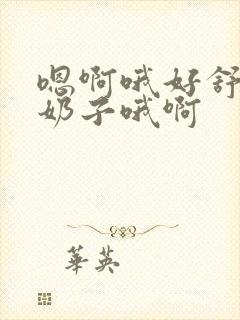 嗯啊哦好舒
奶子哦啊
華英